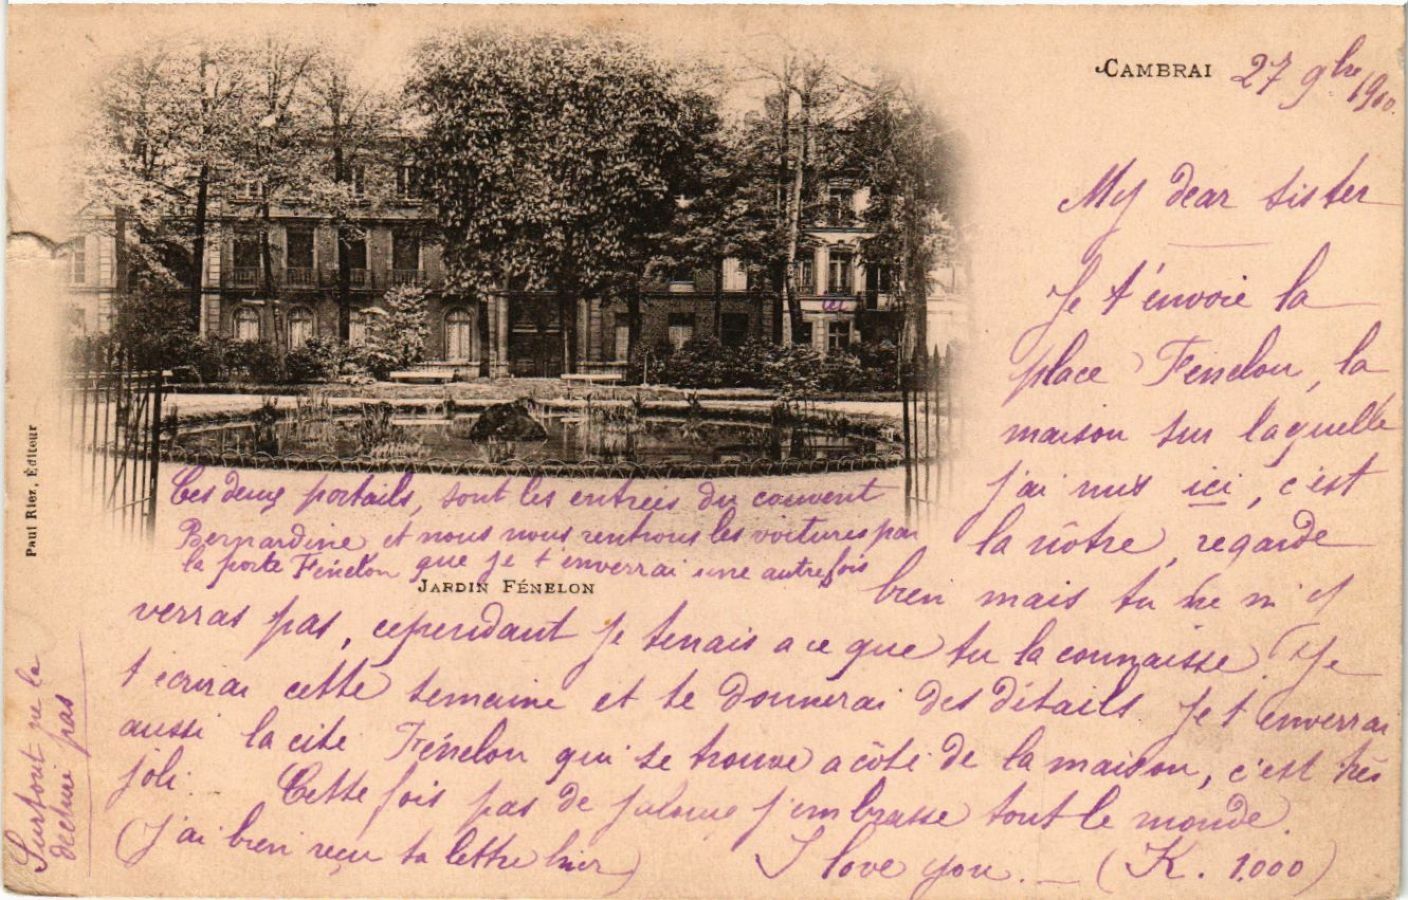 CAMBRAI 27 9bre 1900.
My dear sister
Je t'envoie la
place Fénelon, la
maison sur laquelle
j'ai mis ici, c'est
la nôtre, regarde
bien mais tu ne m'y
verras pas, cependant je tenais a ce que tu la connaisse. Je
t'écrirai cette semaine et te donnerai des détails Je t'enverrai
aussi la cité Fénelon qui se trouve a côté de la maison, c'est très
joli. Cette fois pas de jalouse j'embrasse tout le monde.
(J'ai bien reçu ta lettre hier) I love you. — (K. 1.000)
ici
Ces deux portails, sont les entrées du couvent
Bernardine et nous nous rentrons les voitures par
la porte Fénelon que je t'enverrai une autre fois
JARDIN FÉNELON
Paul Riez, Éditeur
Surtout ne la
décline pas